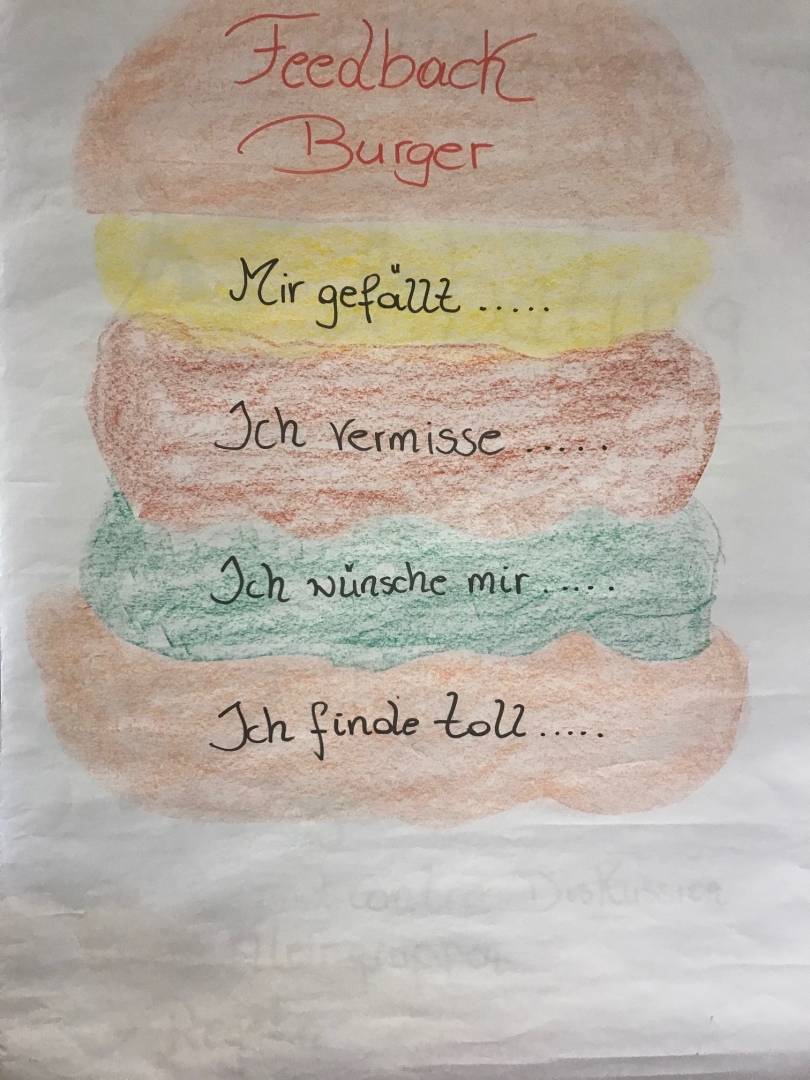 Feedback
Burger
Mir gefällt .....
Ich vermisse .....
Ich wünsche mir .....
Ich finde toll .....
Contra Diskussion